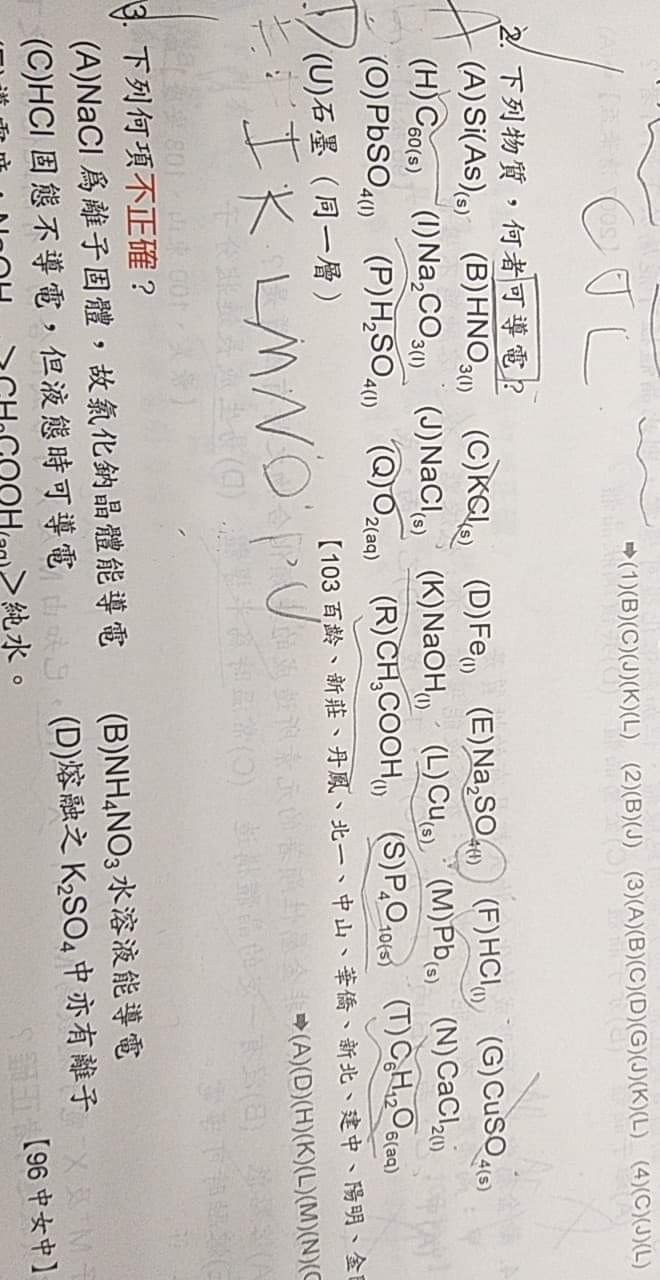 ➡(1)(B)(C)(J)(K)(L) (2)(B)(J) (3)(A)(B)(C)(D)(G)(J)(K)(L) (4)(C)(J)(L)
C J L
2. 下列物質，何者可導電？
(A)Si(As)(s) (B)HNO3(l) (C)KCl(s) (D)Fe(l) (E)Na2SO4(l) (F)HCl(l) (G)CuSO4(s)
(H)C60(s) (I)Na2CO3(l) (J)NaCl(s) (K)NaOH(l) (L)Cu(s) (M)Pb(s) (N)CaCl2(l)
(O)PbSO4(l) (P)H2SO4(l) (Q)O2(aq) (R)CH3COOH(l) (S)P4O10(s) (T)C6H12O6(aq)
(U)石墨（同一層）
【103百齡、新莊、丹鳳、北一、中山、華僑、新北、建中、陽明、金
A D
I K L M N O P U
➡(A)(D)(H)(K)(L)(M)(N)(
3. 下列何項不正確？
(A)NaCl為離子固體，故氯化鈉晶體能導電 (B)NH4NO3水溶液能導電
(C)HCl固態不導電，但液態時可導電 (D)熔融之K2SO4中亦有離子
導電度：NaOH >CH3COOH(aq)>純水。
【96中女中】